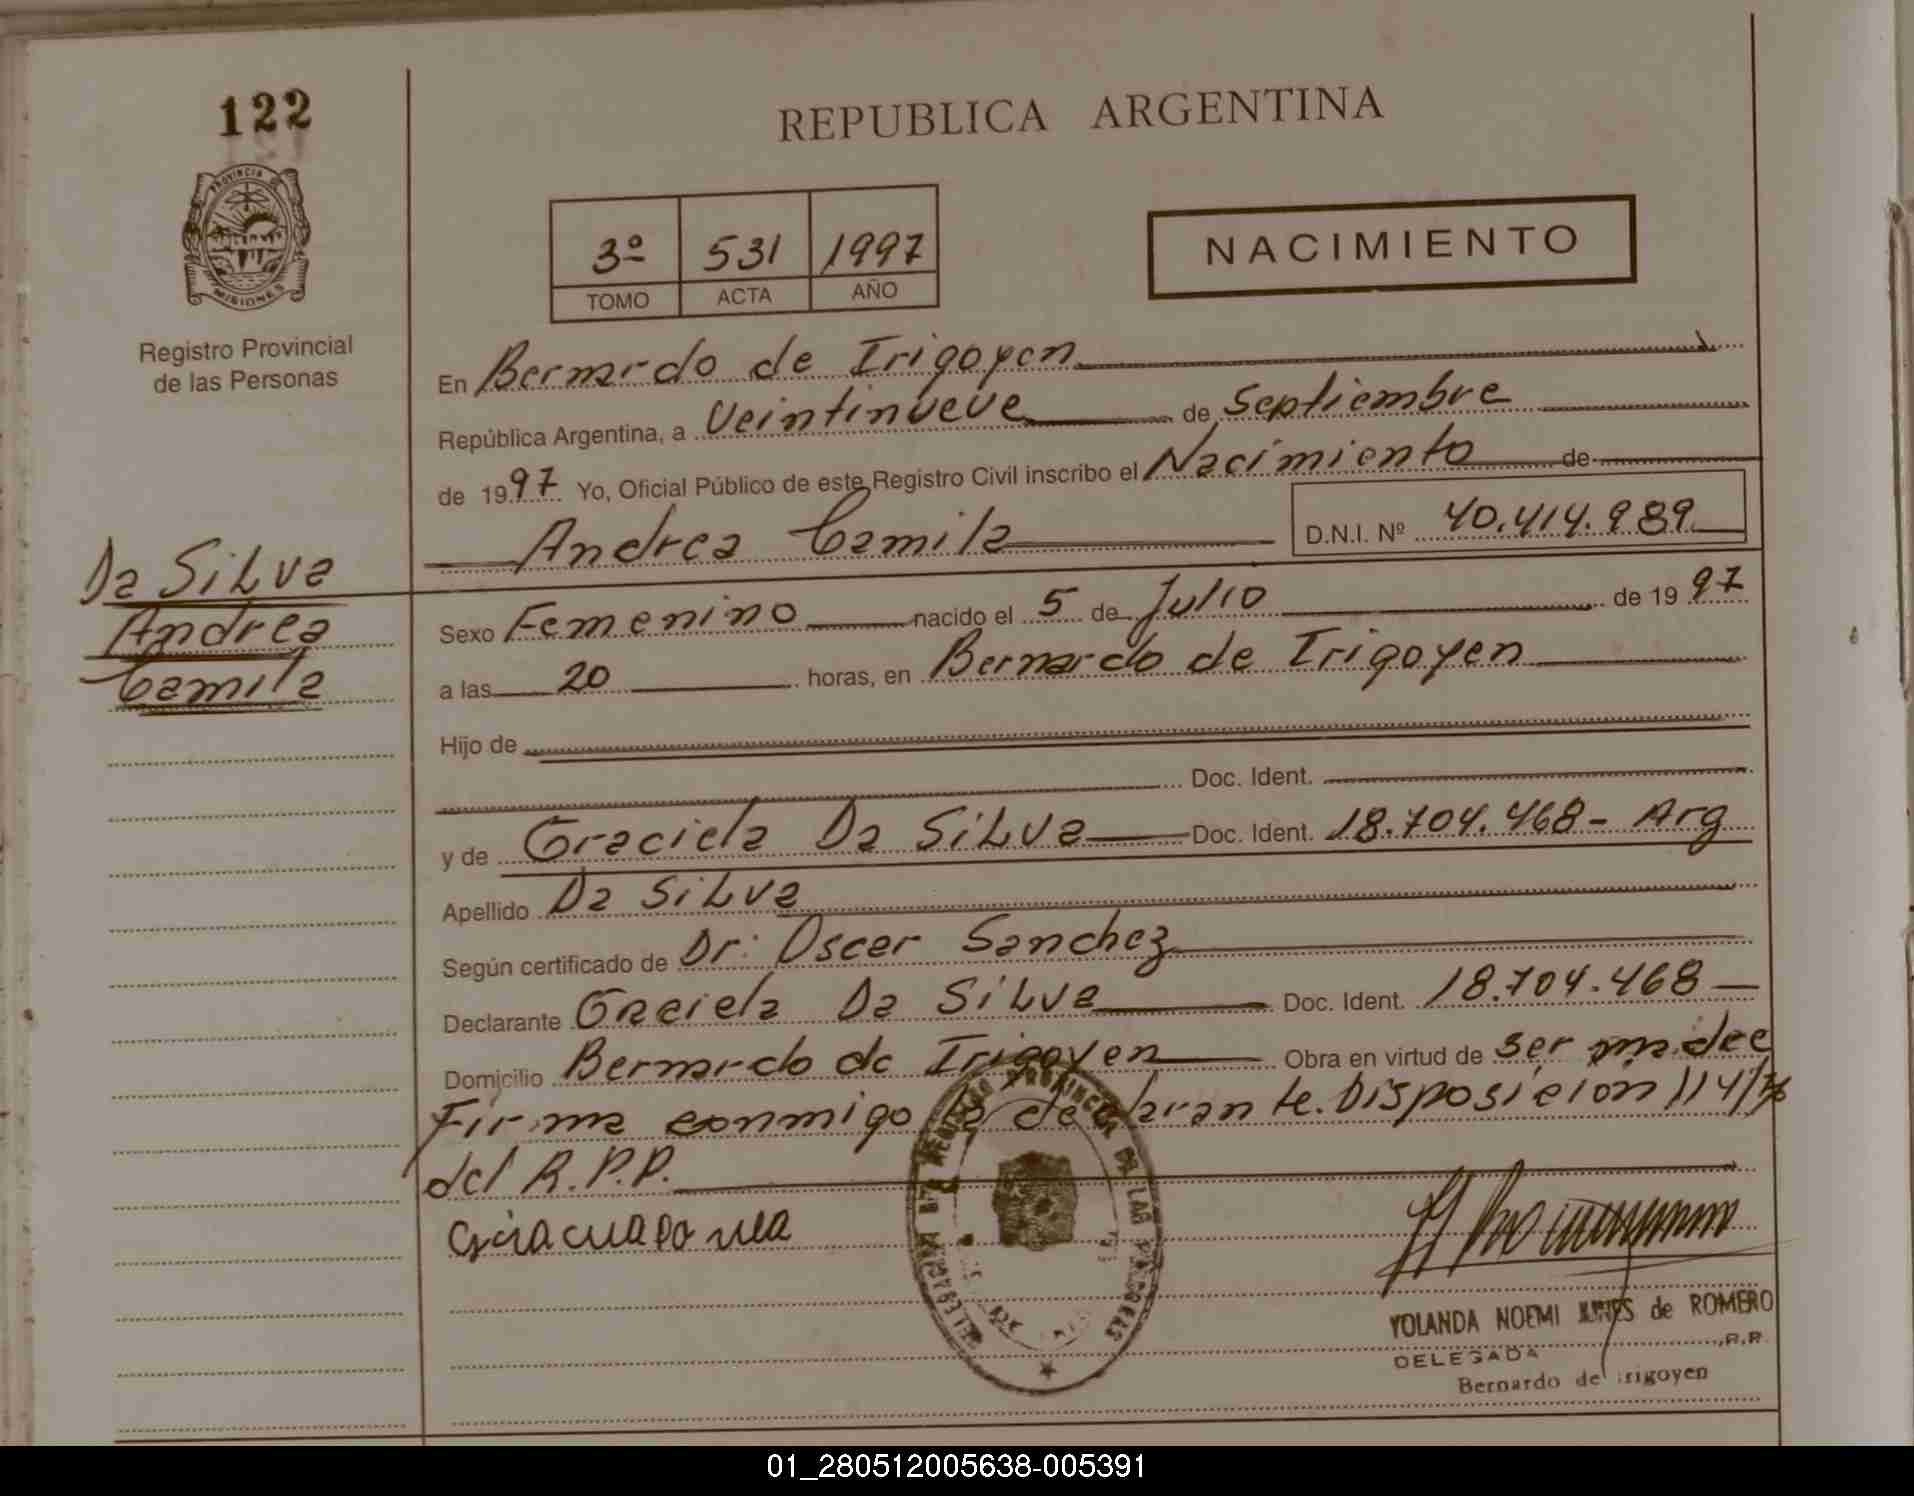 122
PROVINCIA
MISIONES
Registro Provincial
de las Personas
Da Silva
Andrea
Camila
REPUBLICA ARGENTINA
3º 531 1997
TOMO ACTA AÑO
NACIMIENTO
En Bernardo de Irigoyen
República Argentina, a Veintinueve de Septiembre
de 1997 Yo, Oficial Público de este Registro Civil inscribo el Nacimiento de
Andrea Camila D.N.I. Nº 40.414.989
Sexo Femenino nacido el 5 de Julio de 1997
a las 20 horas, en Bernardo de Irigoyen
Hijo de
Doc. Ident.
y de Graciela Da Silva Doc. Ident. 18.704.468- Arg
Apellido Da Silva
Según certificado de Dr: Oscar Sanchez
Declarante Graciela Da Silva Doc. Ident. 18.704.468
Domicilio Bernardo de Irigoyen Obra en virtud de ser madre
Firma conmigo la declarante. Disposición 114/76
del R.P.P.
YOLANDA NOEMI de ROMERO
DELEGADA R.P.
Bernardo de Irigoyen
01_280512005638-005391